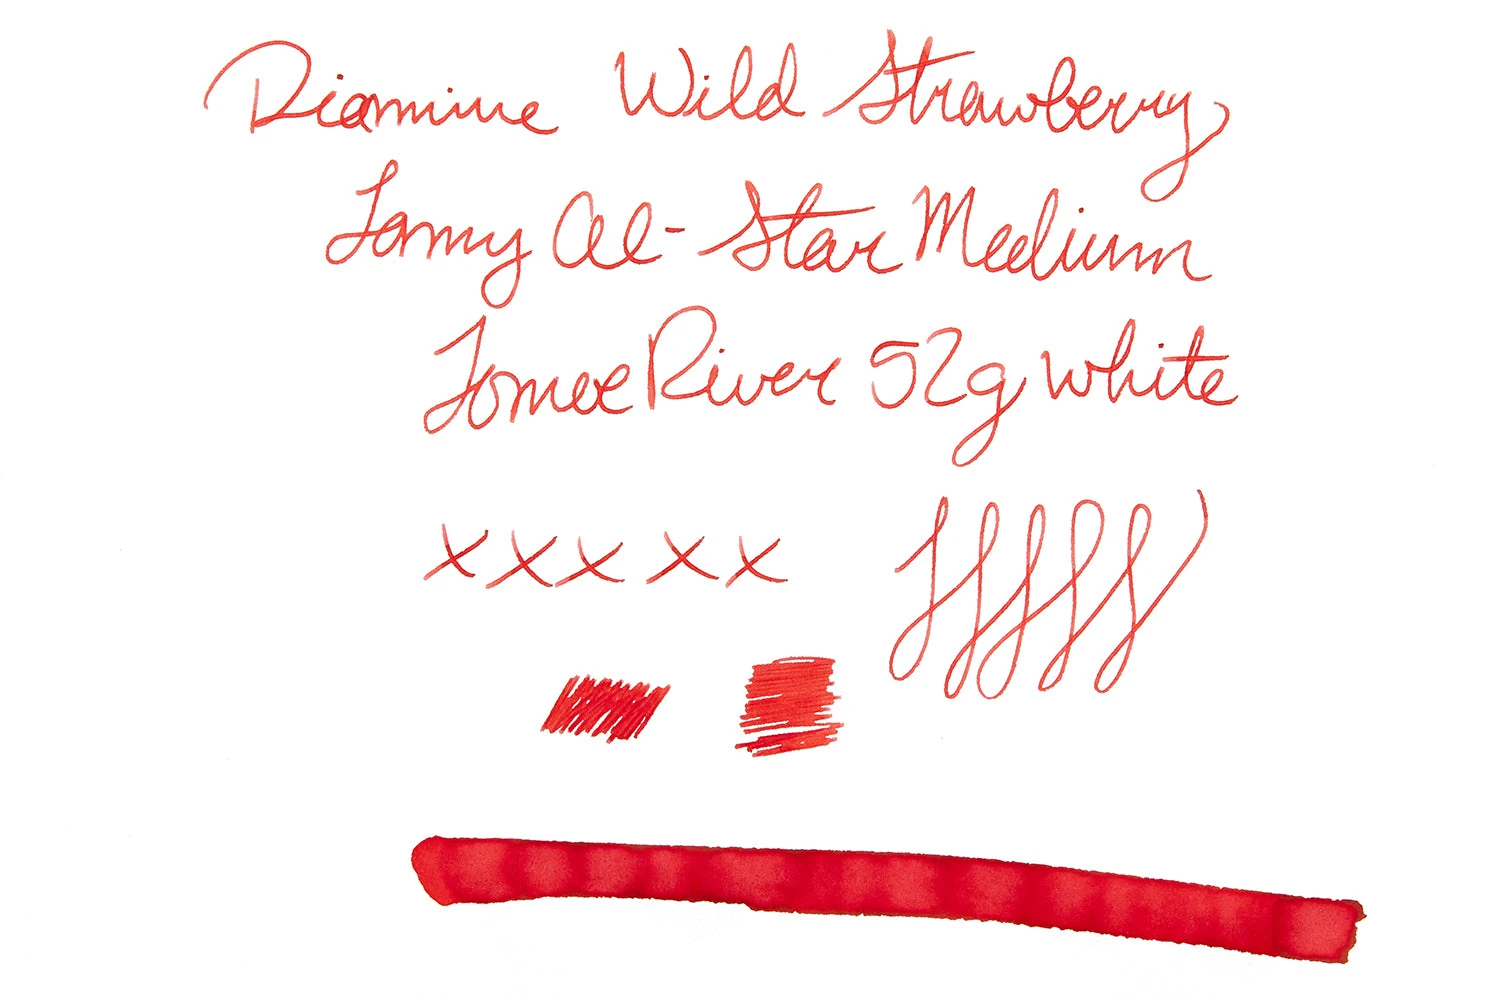 Diamine Wild Strawberry
Lamy Al-Star Medium
Tomoe River 52g white
x x x x x